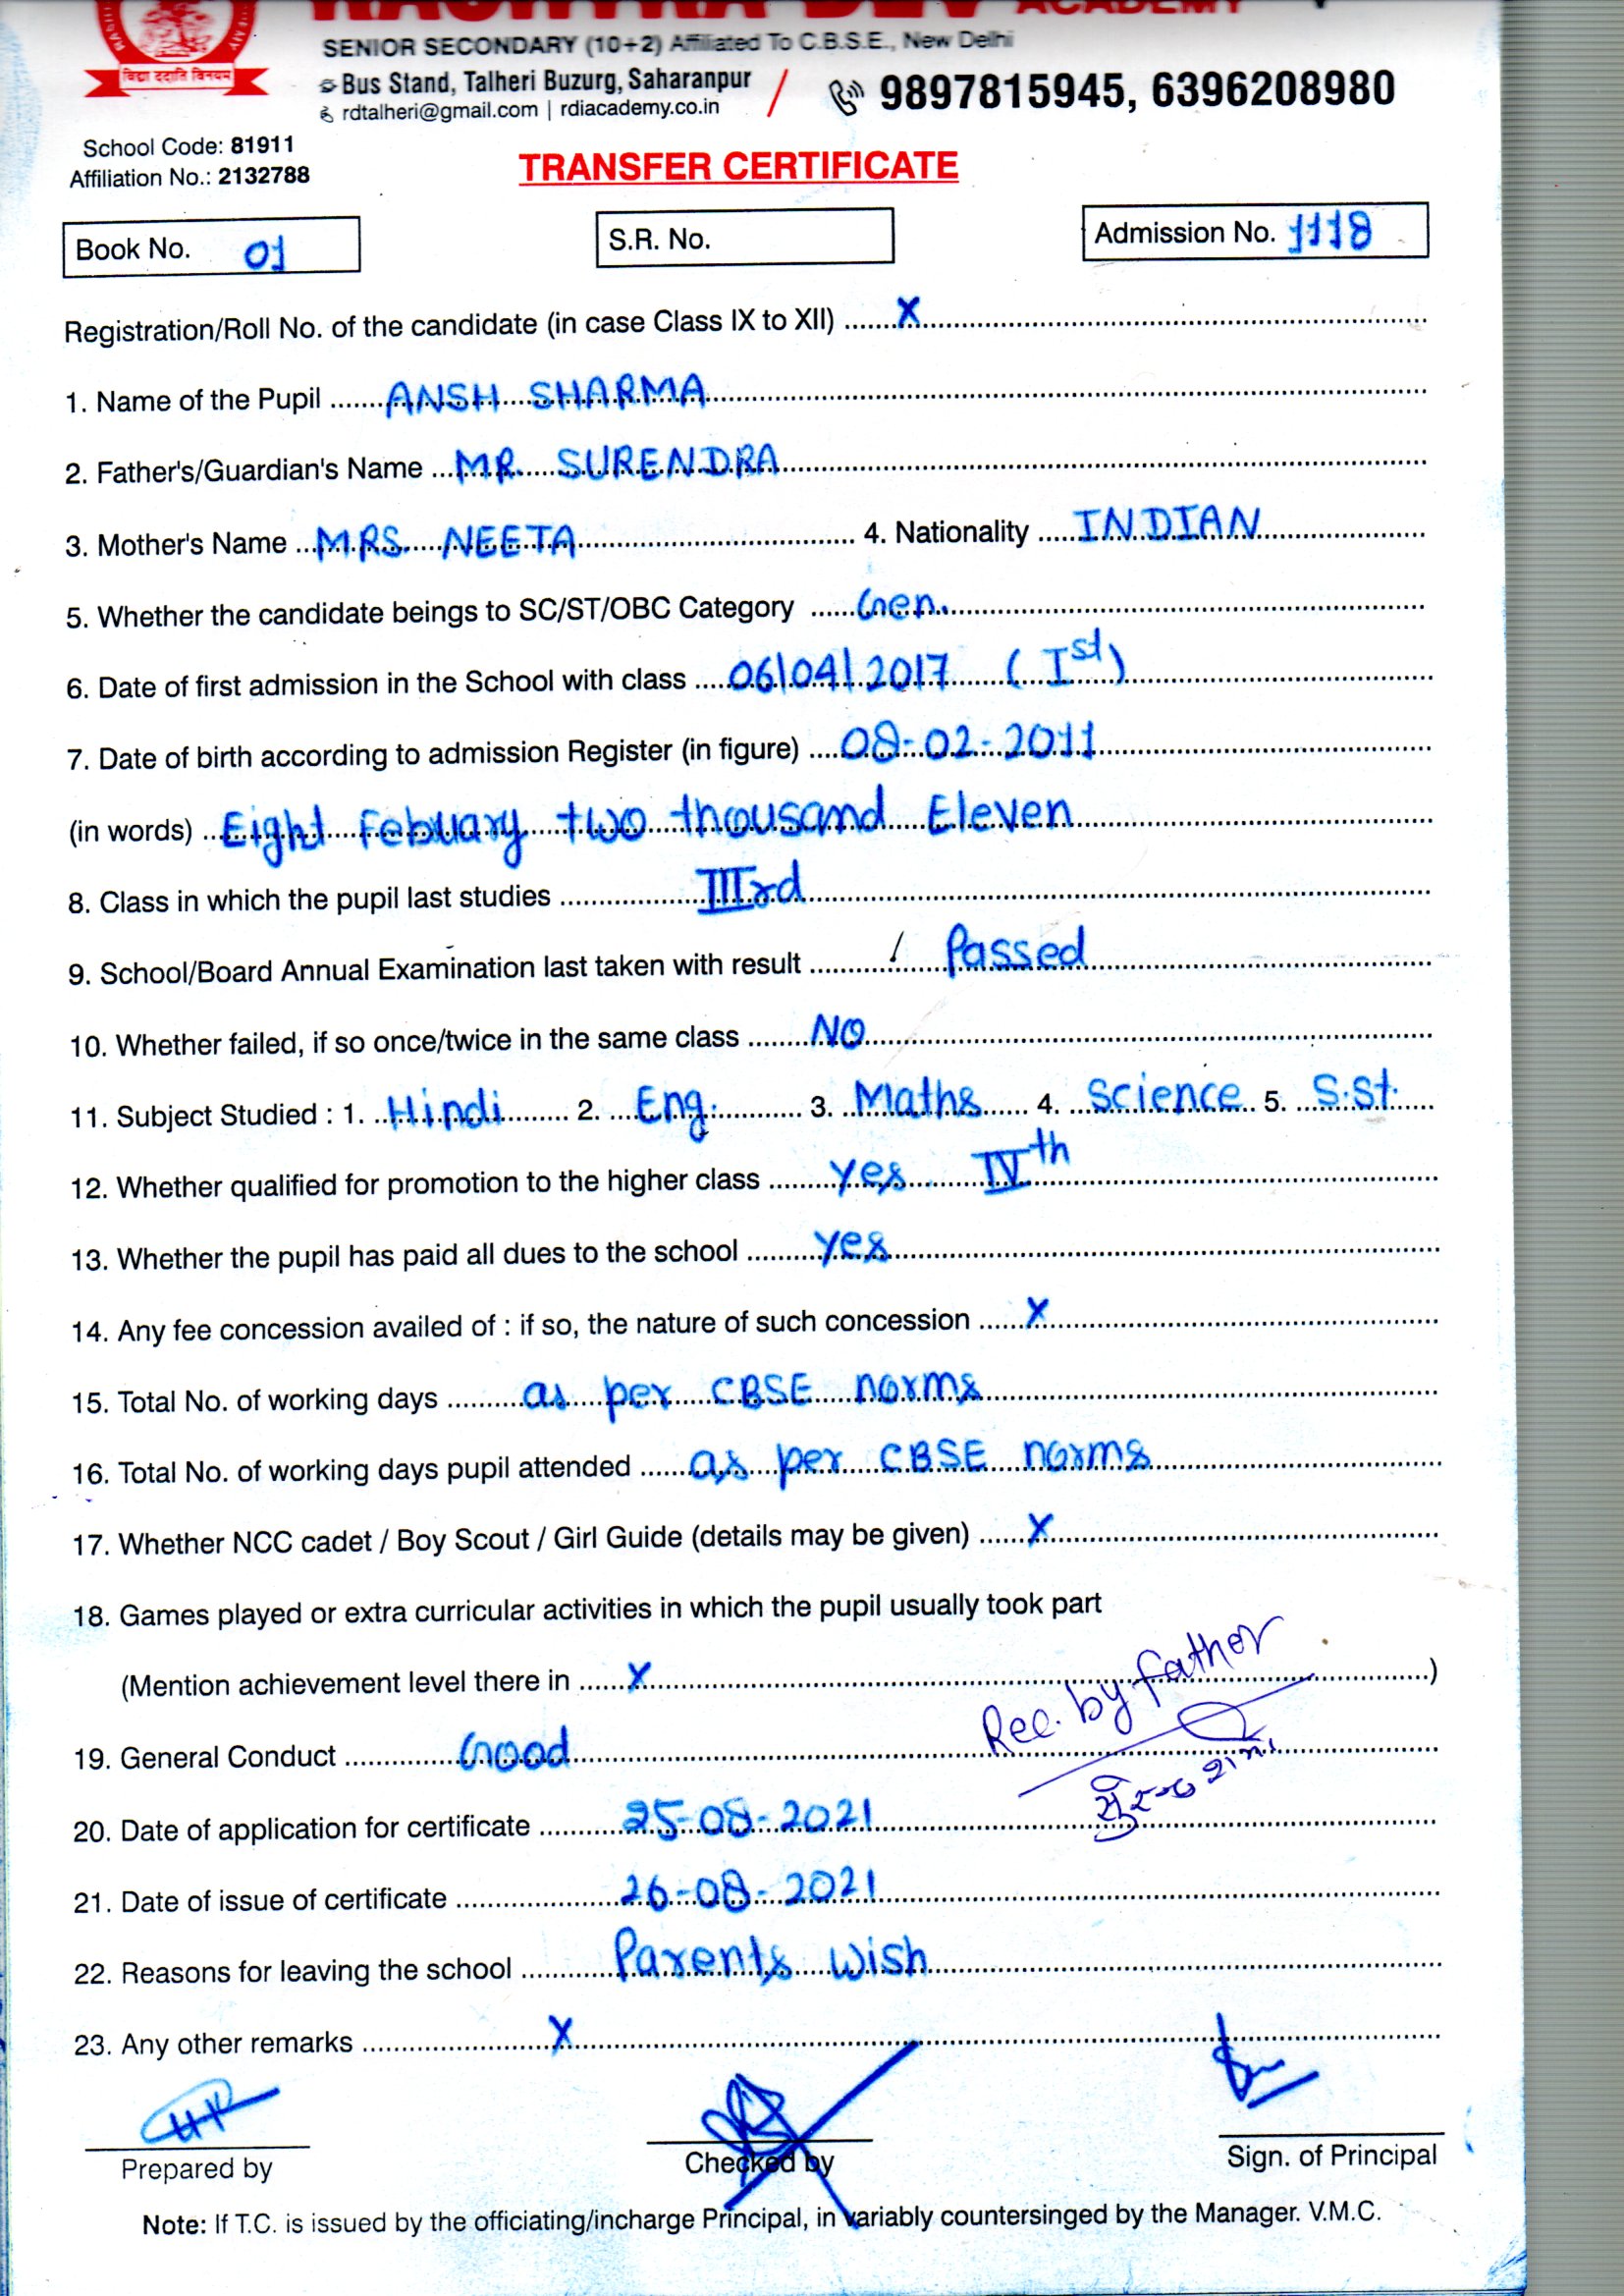 ACADEMY
SENIOR SECONDARY (10+2) Affiliated To C.B.S.E., New Delhi
Bus Stand, Talheri Buzurg, Saharanpur
rdtalheri@gmail.com | rdiacademy.co.in
9897815945, 6396208980
विद्या ददाति विनयम्
School Code: 81911
Affiliation No.: 2132788
TRANSFER CERTIFICATE
Book No. 01
S.R. No.
Admission No. 1118
Registration/Roll No. of the candidate (in case Class IX to XII) ........X........
1. Name of the Pupil ........ANSH SHARMA........
2. Father's/Guardian's Name ...MR. SURENDRA........
3. Mother's Name ...MRS. NEETA........ 4. Nationality .....INDIAN........
5. Whether the candidate beings to SC/ST/OBC Category ......Gen.........
6. Date of first admission in the School with class ....06/04/2017 (Ist)........
7. Date of birth according to admission Register (in figure) ....08-02-2011........
(in words) ..Eight Febuary two thousand Eleven........
8. Class in which the pupil last studies ........IIIrd........
9. School/Board Annual Examination last taken with result ........Passed........
10. Whether failed, if so once/twice in the same class ........NO........
11. Subject Studied : 1. ..Hindi........ 2. ...Eng.......... 3. ..Maths..... 4. ...Science.. 5. ...S.St.....
12. Whether qualified for promotion to the higher class ........yes IVth........
13. Whether the pupil has paid all dues to the school ........yes........
14. Any fee concession availed of : if so, the nature of such concession ......X........
15. Total No. of working days ........as per CBSE norms........
16. Total No. of working days pupil attended ......as per CBSE norms........
17. Whether NCC cadet / Boy Scout / Girl Guide (details may be given) ......X........
18. Games played or extra curricular activities in which the pupil usually took part
(Mention achievement level there in ......X........)
Rec. by father
19. General Conduct ........Good........
20. Date of application for certificate ........25-08-2021........
21. Date of issue of certificate ........26-08-2021........
22. Reasons for leaving the school ........Parents wish........
23. Any other remarks ........X........
Prepared by
Checked by
Sign. of Principal
Note: If T.C. is issued by the officiating/incharge Principal, in variably countersinged by the Manager. V.M.C.